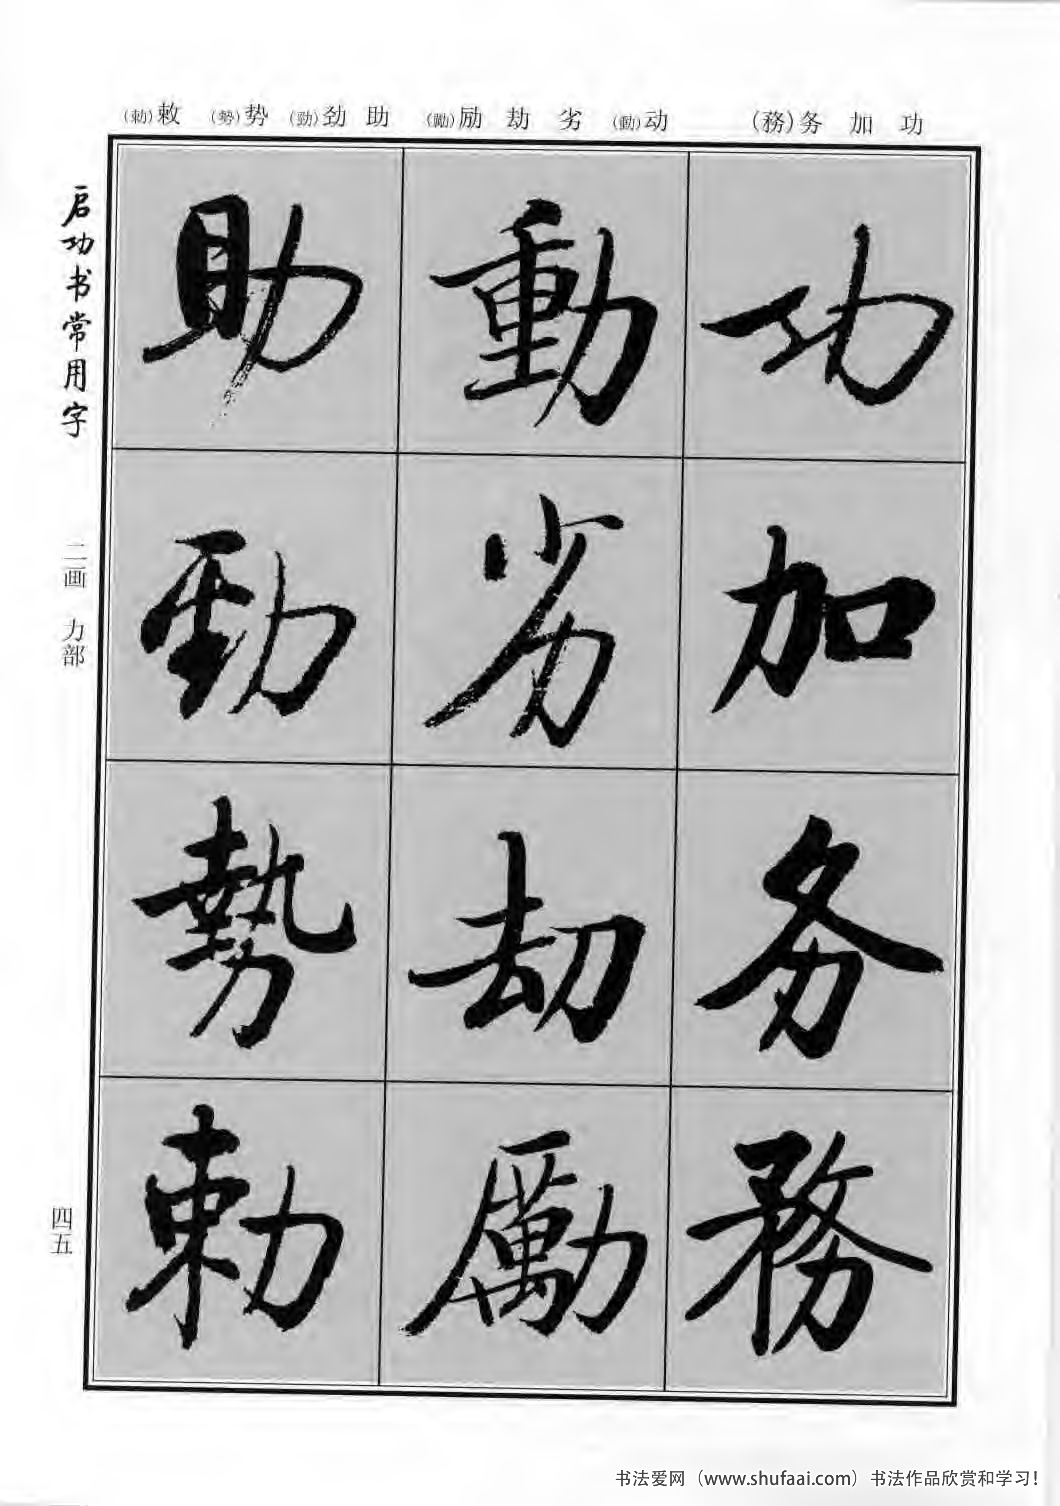 功 加 务(務) 动(動) 劣 劫 励(勵) 助 劲(勁) 势(勢) 敕(勅)
功
加
务
務
動
劣
劫
勵
助
勁
勢
勅
启功书常用字
二画 力部
四五
书法爱网（www.shufaai.com）书法作品欣赏和学习！